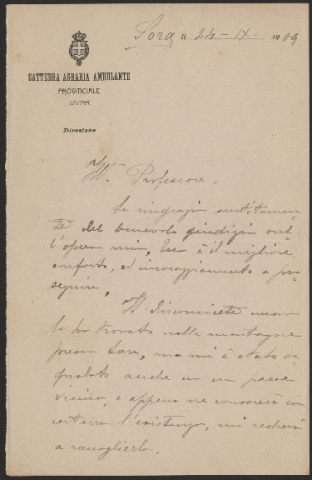 CATTEDRA AGRARIA AMBULANTE
PROVINCIALE
Direzione
Sora li 24 - IX - 1909
Ill. Professore,
La ringrazio sentitamen-
te del benevolo giudizio sul-
l'opera mia, che è il migliore
conforto, ed incoraggiamento a pro-
seguire.
Il Discomicete non
lo ho trovato nelle montagne
presso Sora, ma mi è stato se-
gnalato anche in un paese
vicino, e appena ne conoscerò con
certezza l'esistenza, mi recherò
a raccoglierlo.